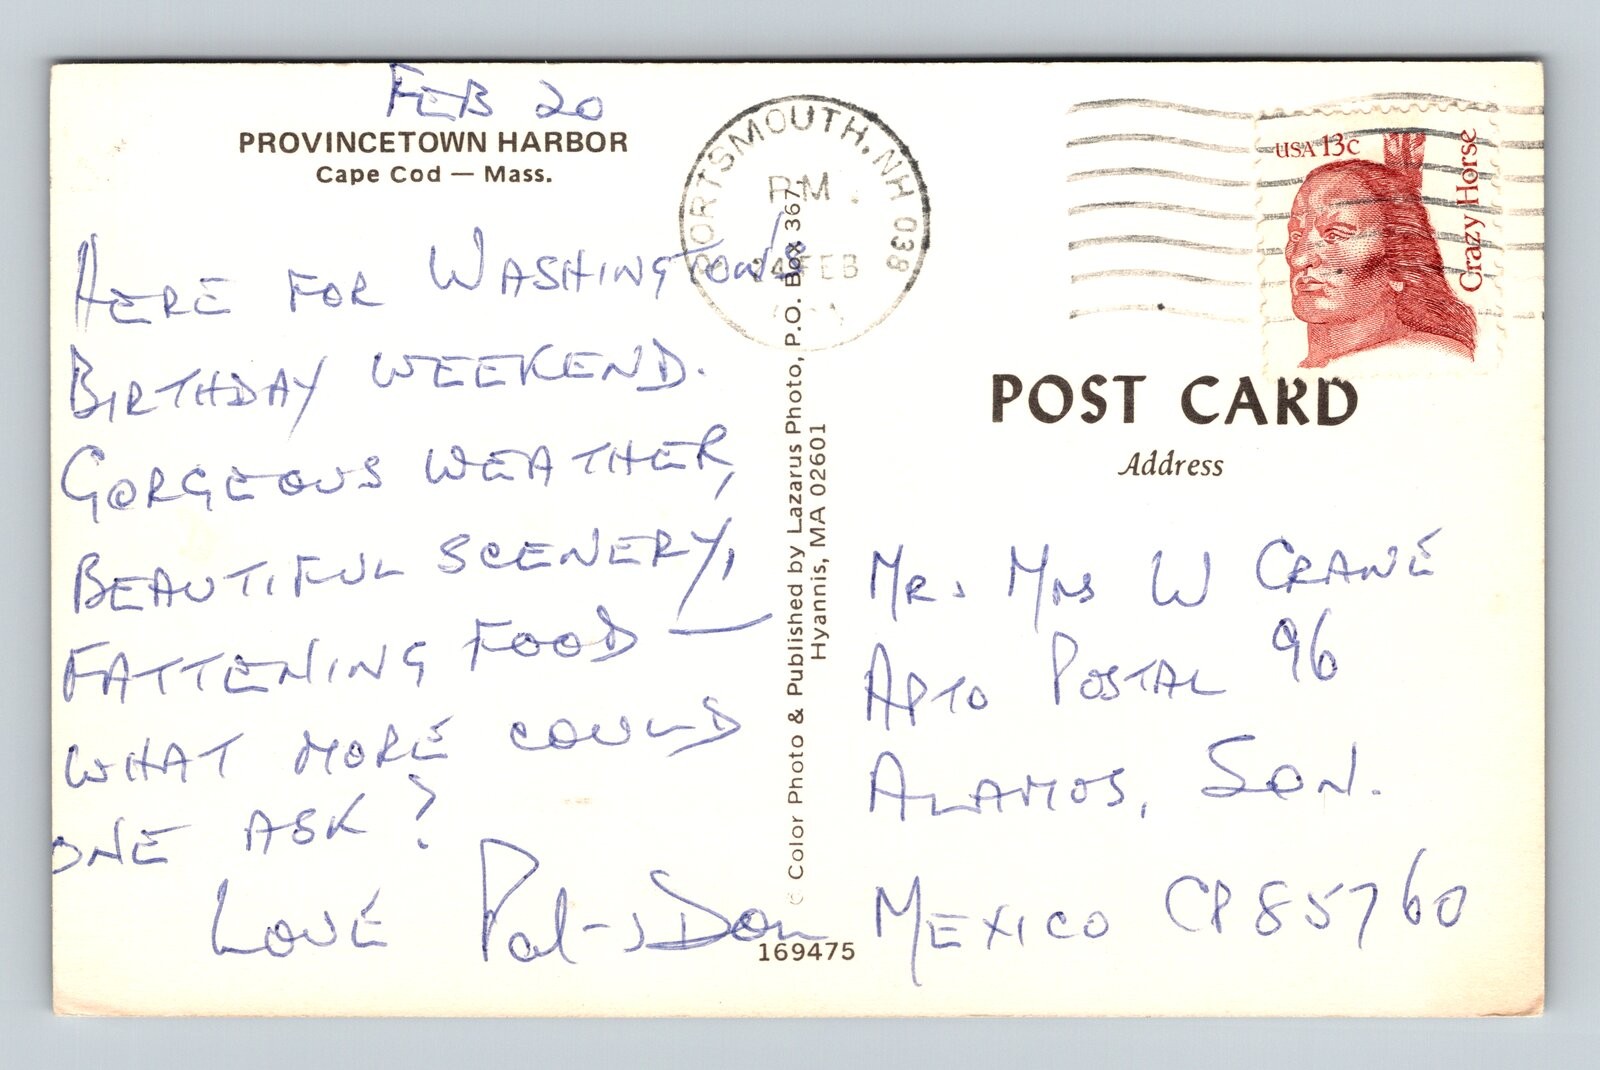 FEB 20
PROVINCETOWN HARBOR
Cape Cod — Mass.
HERE FOR WASHINGTON'S
BIRTHDAY WEEKEND.
GORGEOUS WEATHER,
BEAUTIFUL SCENERY,
FATTENING FOOD —
WHAT MORE COULD
ONE ASK?
LOVE Pat & Don
© Color Photo & Published by Lazarus Photo, P.O. Box 367,
Hyannis, MA 02601
169475
PORTSMOUTH, NH 038
PM
24 FEB
USA 13c
Crazy Horse
POST CARD
Address
MR. MRS W CRANE
APTO POSTAL 96
ALAMOS, SON.
MEXICO CP 85760